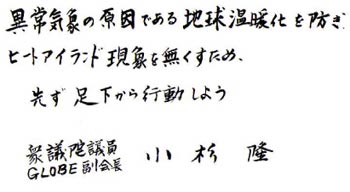 異常気象の原因である地球温暖化を防ぎ
ヒートアイランド現象を無くすため、
先ず足下から行動しよう
衆議院議員
GLOBE副会長 小杉 隆